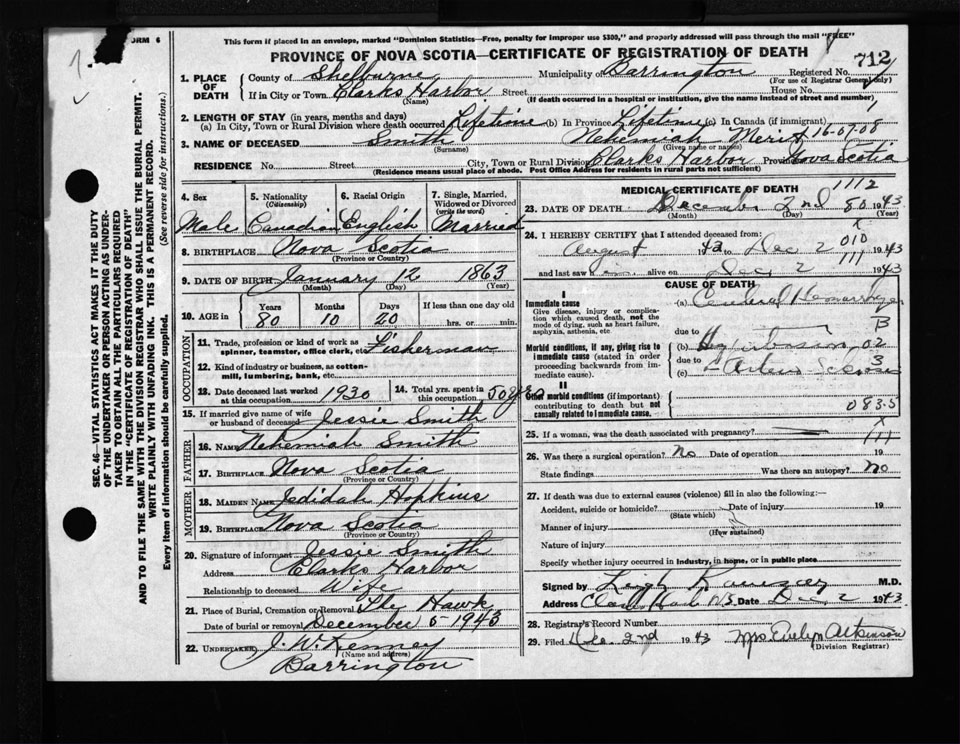 ORM 6
This form if placed in an envelope, marked "Dominion Statistics—Free, penalty for improper use $300," and properly addressed will pass through the mail "FREE"
PROVINCE OF NOVA SCOTIA—CERTIFICATE OF REGISTRATION OF DEATH
712
1. PLACE OF DEATH
County of Shelburne Municipality of Barrington Registered No.
(For use of Registrar General only)
If in City or Town Clarks Harbor Street House No.
(Name) (If death occurred in a hospital or institution, give the name instead of street and number)
2. LENGTH OF STAY (in years, months and days)
(a) In City, Town or Rural Division where death occurred Lifetime (b) In Province Lifetime (c) In Canada (if immigrant)
3. NAME OF DECEASED Smith Nehemiah Merit 16-07-08
(Surname) (Given name or names)
RESIDENCE No. Street City, Town or Rural Division Clarks Harbor Province Nova Scotia
(Residence means usual place of abode. Post Office Address for residents in rural parts not sufficient)
4. Sex Male
5. Nationality (Citizenship) Canadian
6. Racial Origin English
7. Single, Married, Widowed or Divorced (write the word) Married
8. BIRTHPLACE Nova Scotia
(Province or Country)
9. DATE OF BIRTH January 12 1863
(Month) (Day) (Year)
10. AGE in Years Months Days If less than one day old
80 10 20 hrs. or min.
OCCUPATION
11. Trade, profession or kind of work as spinner, teamster, office clerk, etc. Fisherman
12. Kind of industry or business, as cotton-mill, lumbering, bank, etc.
13. Date deceased last worked at this occupation 1930
14. Total yrs. spent in this occupation 50 yrs
15. If married give name of wife or husband of deceased Jessie Smith
FATHER
16. Name Nehemiah Smith
17. Birthplace Nova Scotia
(Province or Country)
MOTHER
18. Maiden Name Jedidah Hopkins
19. Birthplace Nova Scotia
(Province or Country)
20. Signature of informant Jessie Smith
Address Clarks Harbor
Relationship to deceased Wife
21. Place of Burial, Cremation or Removal The Hawk
Date of burial or removal December 5-1943
22. UNDERTAKER J. W. Kenney
(Name and address)
Barrington
MEDICAL CERTIFICATE OF DEATH
1112
23. DATE OF DEATH December 2nd 80 1943
(Month) (Day) (Year)
24. I HEREBY CERTIFY that I attended deceased from:
August 1943 to Dec 2 010 1943
and last saw alive on Dec 2 111 1943
CAUSE OF DEATH
I
Immediate cause (a) Cerebral Hemorrhage
Give disease, injury or complication which caused death, not the mode of dying, such as heart failure, asphyxia, asthenia, etc.
due to B
Morbid conditions, if any, giving rise to immediate cause (stated in order proceeding backwards from immediate cause).
(b) Hypertension 02
due to 3
(c) Arterio Sclerosis
II
Other morbid conditions (if important) contributing to death but not causally related to immediate cause.
083.5
X
25. If a woman, was the death associated with pregnancy? 111
26. Was there a surgical operation? No Date of operation 19
State findings Was there an autopsy? No
27. If death was due to external causes (violence) fill in also the following:—
Accident, suicide or homicide? Date of injury 19
(State which)
Manner of injury
(How sustained)
Nature of injury
Specify whether injury occurred in industry, in home, or in public place
Signed by M.D.
Address Clarks Harb N.S. Date Dec 2 1943
28. Registrar's Record Number
29. Filed Dec. 2nd 1943 Mrs Evelyn Atkinson
(Division Registrar)
SEC. 46—VITAL STATISTICS ACT MAKES IT THE DUTY OF THE UNDERTAKER OR PERSON ACTING AS UNDERTAKER TO OBTAIN ALL THE PARTICULARS REQUIRED IN THE "CERTIFICATE OF REGISTRATION OF DEATH" AND TO FILE THE SAME WITH THE DIVISION REGISTRAR WHO SHALL ISSUE THE BURIAL PERMIT.
WRITE PLAINLY WITH UNFADING INK. THIS IS A PERMANENT RECORD.
Every item of information should be carefully supplied. (See reverse side for instructions.)